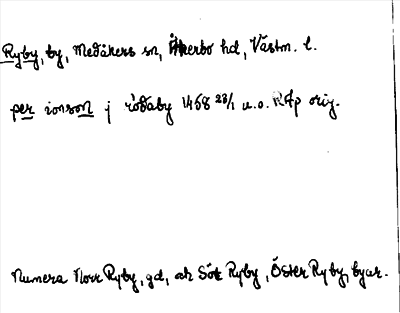 Ryby, by, Medåkers sn, Åkerbo hd, Västm. l.
per ionson j rödaby 1468 23/1 u.o. RAp orig.
Numera Norr Ryby, gd, och Sör Ryby, Öster Ryby, byar.